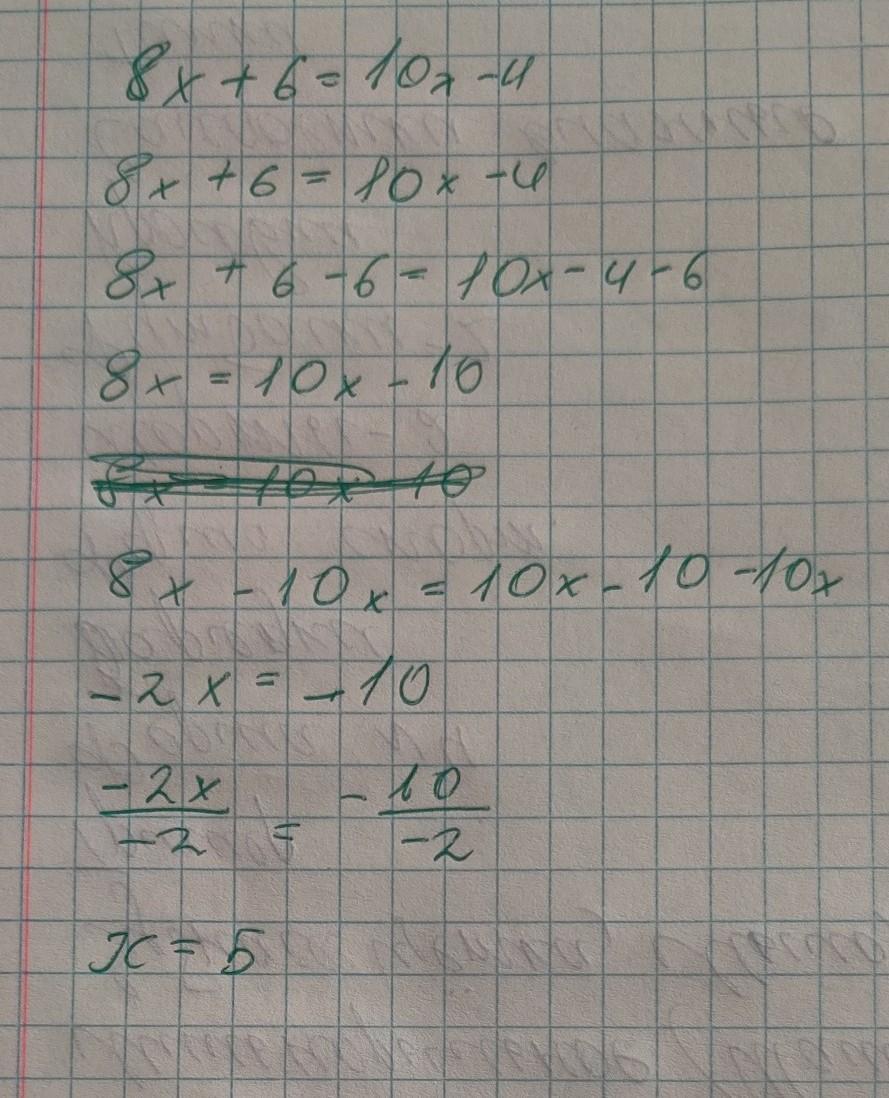 8x + 6 = 10x - 4
8x + 6 = 10x - 4
8x + 6 - 6 = 10x - 4 - 6
8x = 10x - 10
8x = 10x - 10
8x - 10x = 10x - 10 - 10x
-2x = -10
-2x/-2 = -10/-2
x = 5